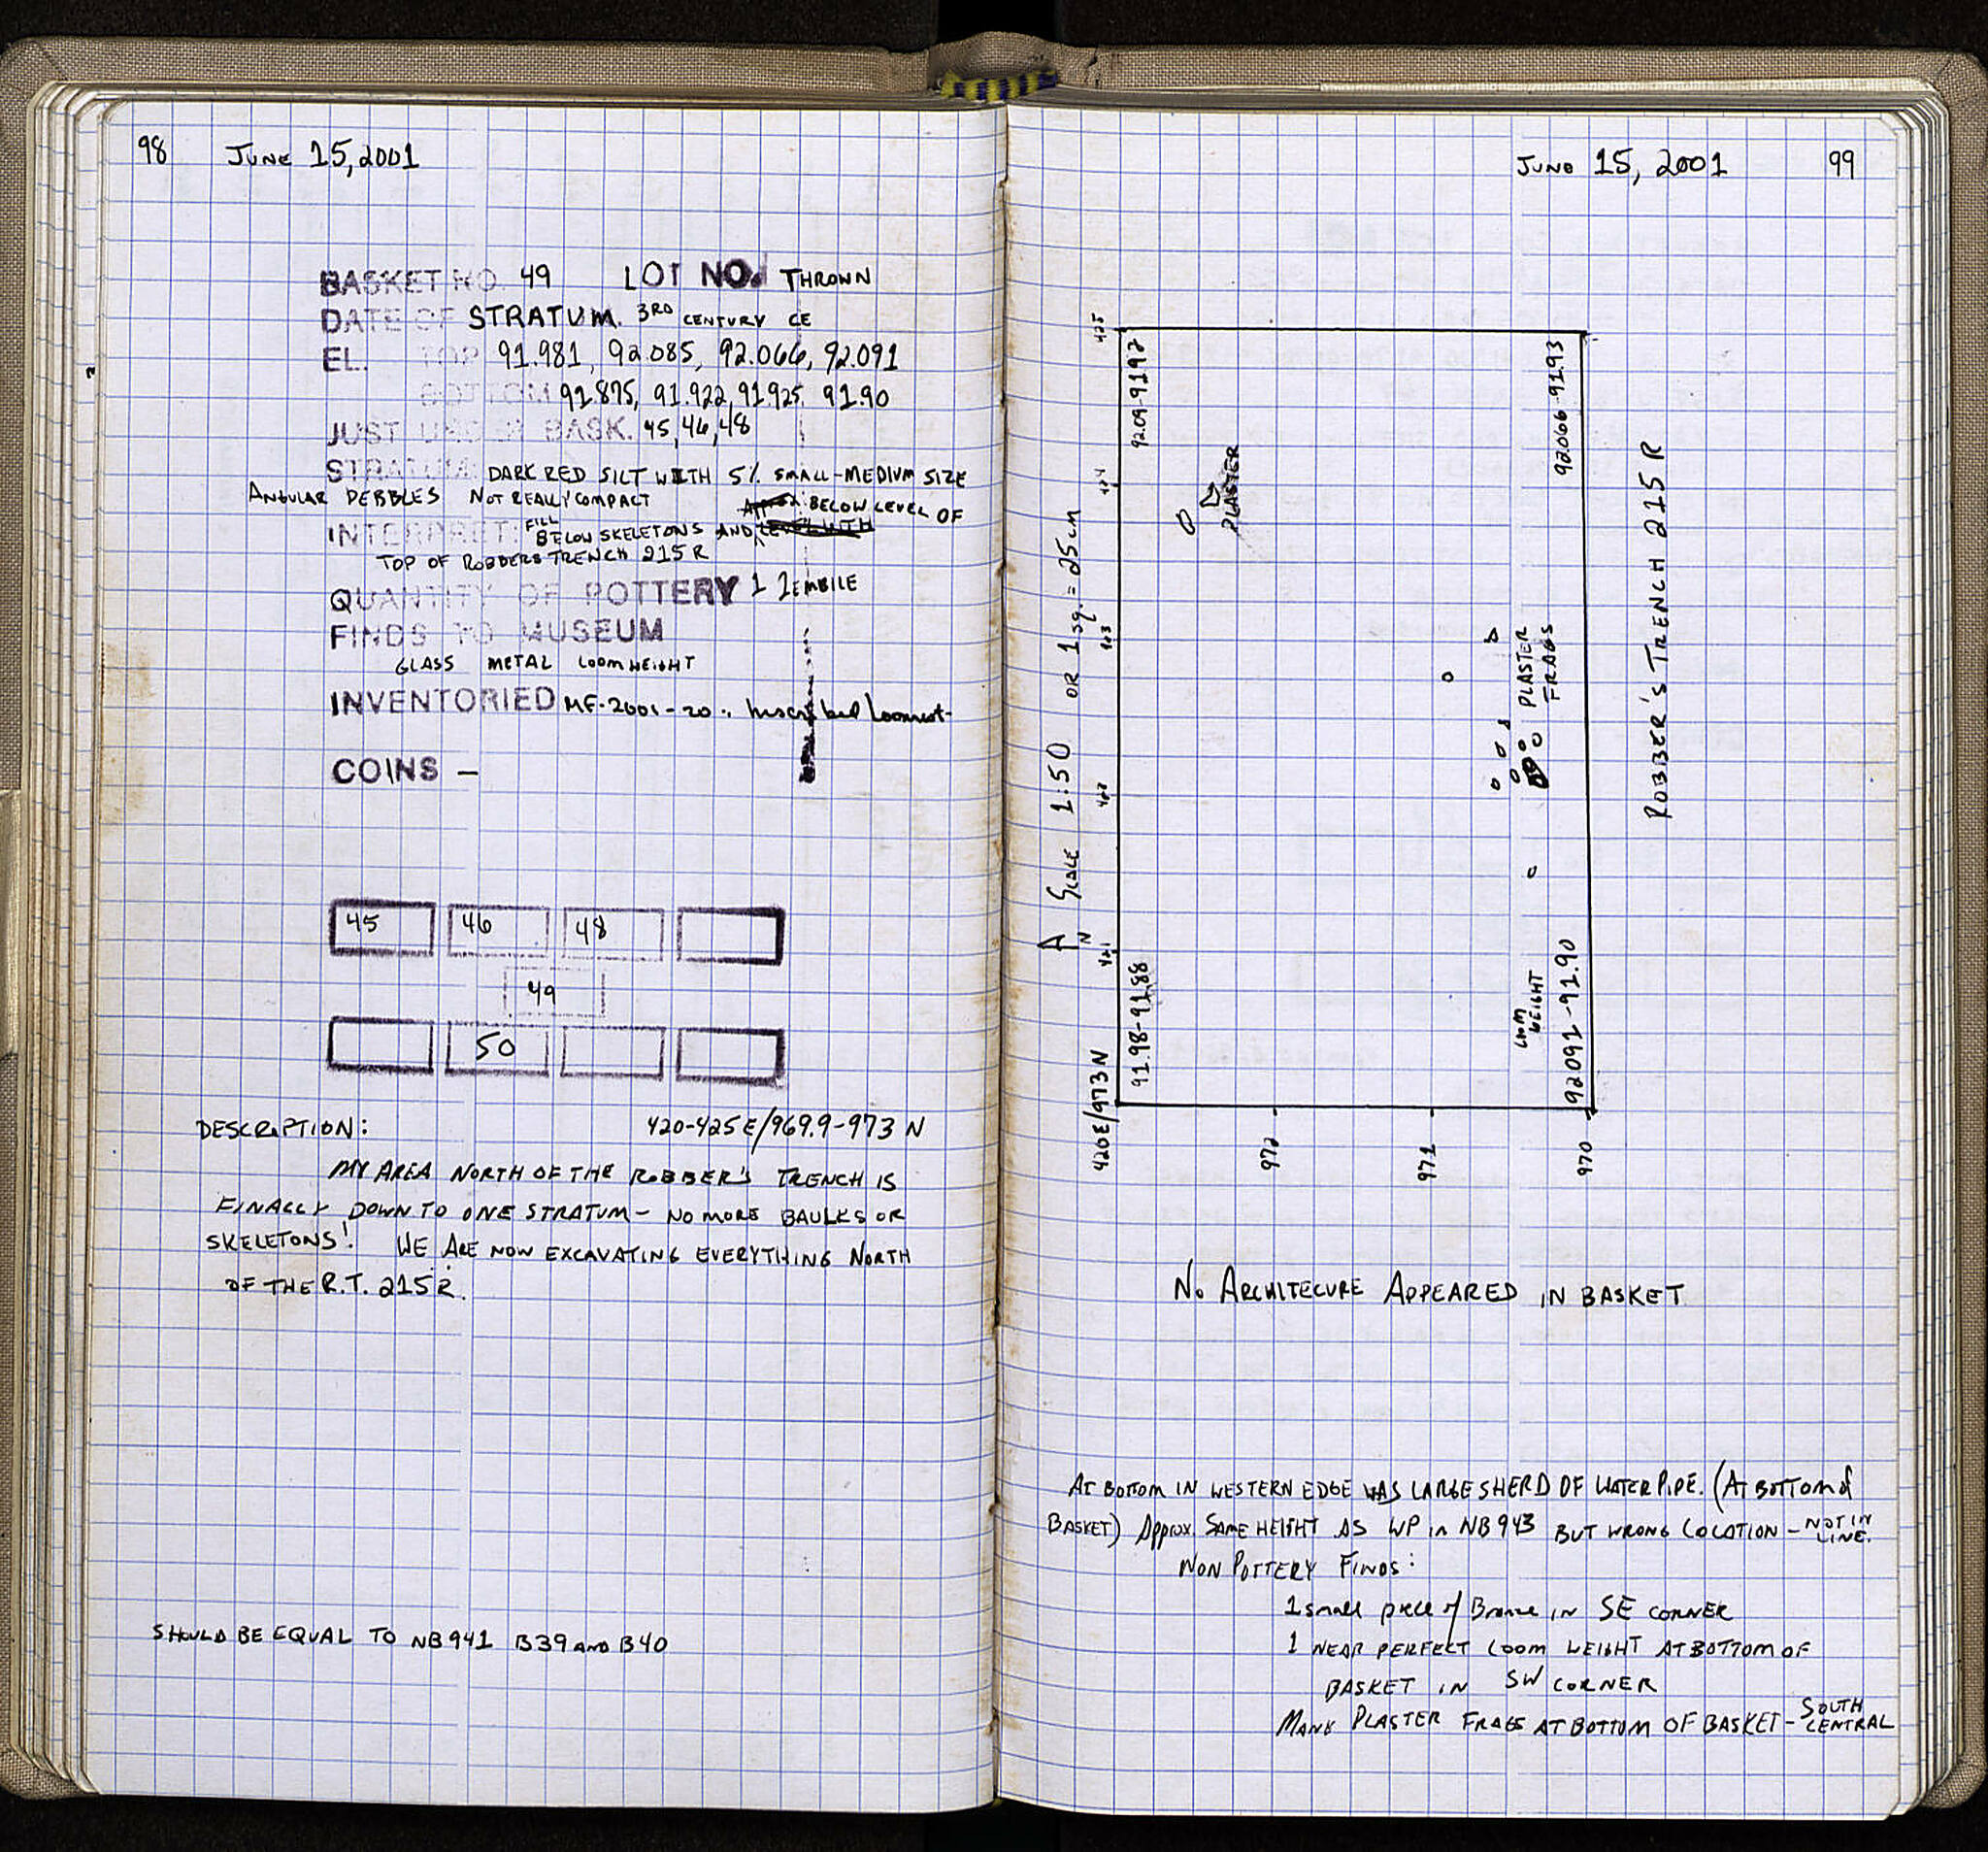 98 JUNE 15, 2001
BASKET NO. 49 LOT NO. THROWN
DATE OF STRATUM. 3RD CENTURY CE
EL. TOP 91.981, 92.085, 92.066, 92.091
BOTTOM 91.875, 91.922, 91.925, 91.90
JUST UNDER BASK. 45, 46, 48
STRATUM: DARK RED SILT WITH 5% SMALL-MEDIUM SIZE
ANGULAR PEBBLES NOT REALLY COMPACT
BELOW LEVEL OF
INTERPRET: FILL BELOW SKELETONS AND
TOP OF ROBBERS TRENCH 215 R
QUANTITY OF POTTERY 1 ZEMBILE
FINDS TO MUSEUM
GLASS METAL LOOMWEIGHT
INVENTORIED MF-2001-20: Inscribed Loomwt.
COINS —
45 46 48
49
50
DESCRIPTION: 420-425E/969.9-973 N
MY AREA NORTH OF THE ROBBER'S TRENCH IS
FINALLY DOWN TO ONE STRATUM - NO MORE BAULKS OR
SKELETONS! WE ARE NOW EXCAVATING EVERYTHING NORTH
OF THE R.T. 215 R.
SHOULD BE EQUAL TO NB 941 B39 AND B40
JUNE 15, 2001 99
N
SCALE 1:50 OR 1 sq. = 25cm
420E/973N
421
422
423
424
425
91.98-91.88
92.09-91.92
PLASTER
LOOM
WEIGHT
PLASTER
FRAGS
92091-91.90
92066-91.93
972
971
970
ROBBER'S TRENCH 215 R
NO ARCHITECURE APPEARED IN BASKET
AT BOTTOM IN WESTERN EDGE WAS LARGE SHERD OF WATER PIPE. (AT BOTTOM of
BASKET) Approx. SAME HEIGHT AS WP in NB 943 BUT WRONG LOCATION - NOT IN
LINE.
NON POTTERY FINDS:
1 small piece of Bronze IN SE CORNER
1 NEAR PERFECT LOOM WEIGHT AT BOTTOM OF
BASKET IN SW CORNER
MANY PLASTER FRAGS AT BOTTOM OF BASKET - SOUTH
CENTRAL